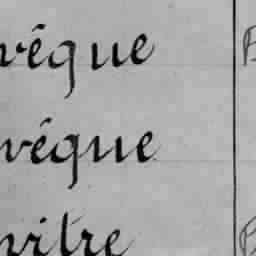 vêque
vêque
vitre